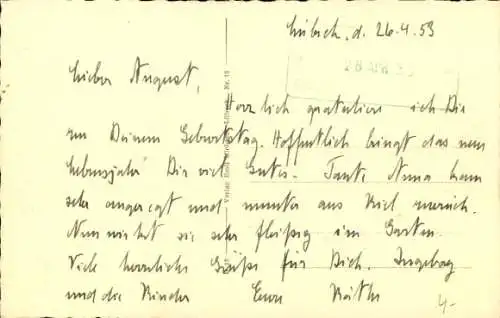 Lübeck, d. 26.4.53
28 APR 53
Lieber August,
Herzlich gratuliere ich Dir
zu Deinem Geburtstag. Hoffentlich bringt das neue
Lebensjahr Dir viel Gutes. Tante Anna kam
sehr angeregt und munter aus Kiel zurück.
Nun wirkt sie sehr fleißig im Garten.
Viele herzliche Grüße für Dich, Ingeborg
und die Kinder Eure Käthe
4-